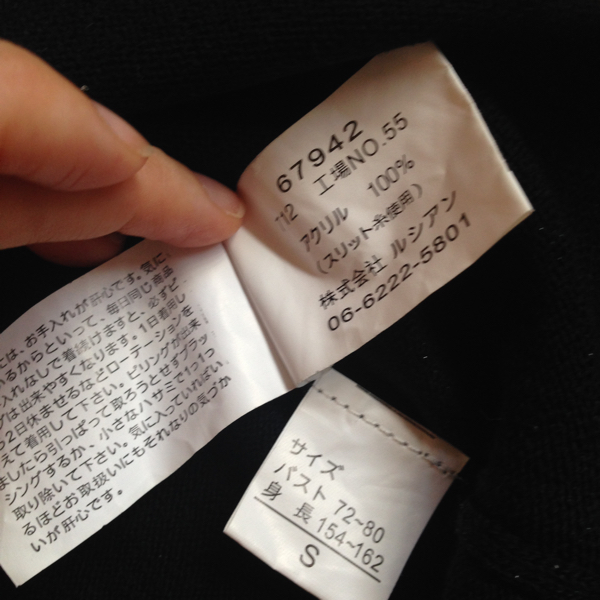 67942
712 工場NO.55
アクリル 100%
(スリット糸使用)
株式会社 ルシアン
06-6222-5801
は、お手入れが肝心です。気に
いるからといって、毎日同じ商品
入れなしで着続けますと、必ずピ
グは出来やすくなります。1日着用し
2日休ませるなどローテーションを
えて着用して下さい。ピリングが出来
ましたら引っぱって取ろうとせずブラッ
シングするか、小さなハサミで1つ1つ
取り除いて下さい。気に入っていればい
るほどお取扱いにもそれなりの気づか
いが肝心です。
サイズ
バスト 72~80
身長 154~162
S